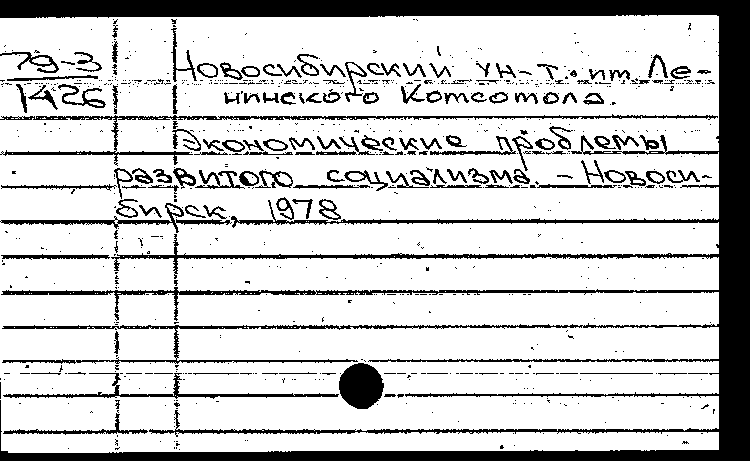 79-3
1426
Новосибирский ун-т. им. Ле-
нинского Комсомола.
Экономические проблемы
развитого социализма. - Новоси-
бирск, 1978